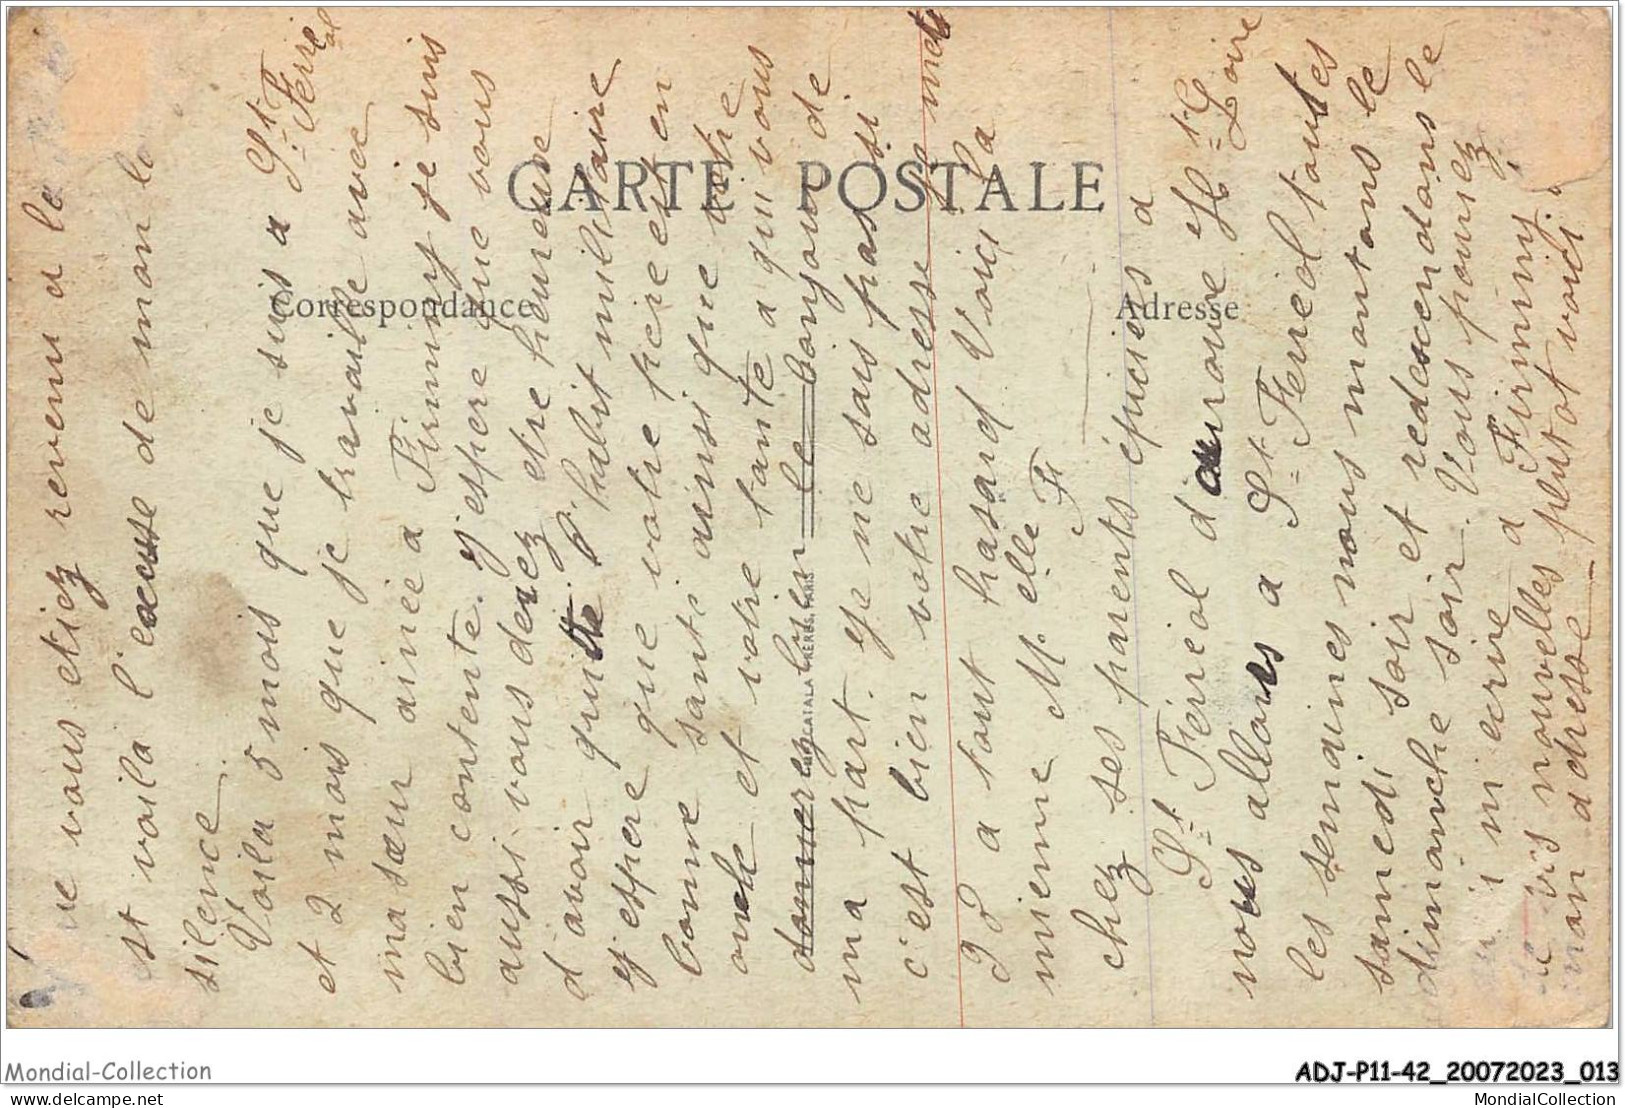 que vous etiez revenu a la
est voila l'excuse de mon lo
silence.
Voila 5 mois que je suis a St Ferreol
et 2 mois que je travaille avec
ma sœur ainée a Firminy je suis
bien contente. j'espere que vous
aussi vous derez etre heureuse
d avoir quitte l'habit militaire
j'espere que votre pere est en
bonne santé ainsi que votre
oncle et votre tante a qui vous
donnerez bien le bonjour de
ma part. Je ne sais pas si
c'est bien votre adresse je mets
ça a tout hasard Voici la
mienne M. elle F
chez ses parents épiciers a
St Férréol d'auroure Hte Loire
nous allons a St Ferreol toutes
les semaines nous montons le
samedi soir et redescendons le
dimanche soir. Vous pouriez
m ecrire a Firminy
nouvelles plutot voici
mon adresse
CARTE POSTALE
Correspondance
Adresse
FRERES, PARIS
Mondial-Collection
ADJ-P11-42_20072023_013
delcampe.net
MondialCollection